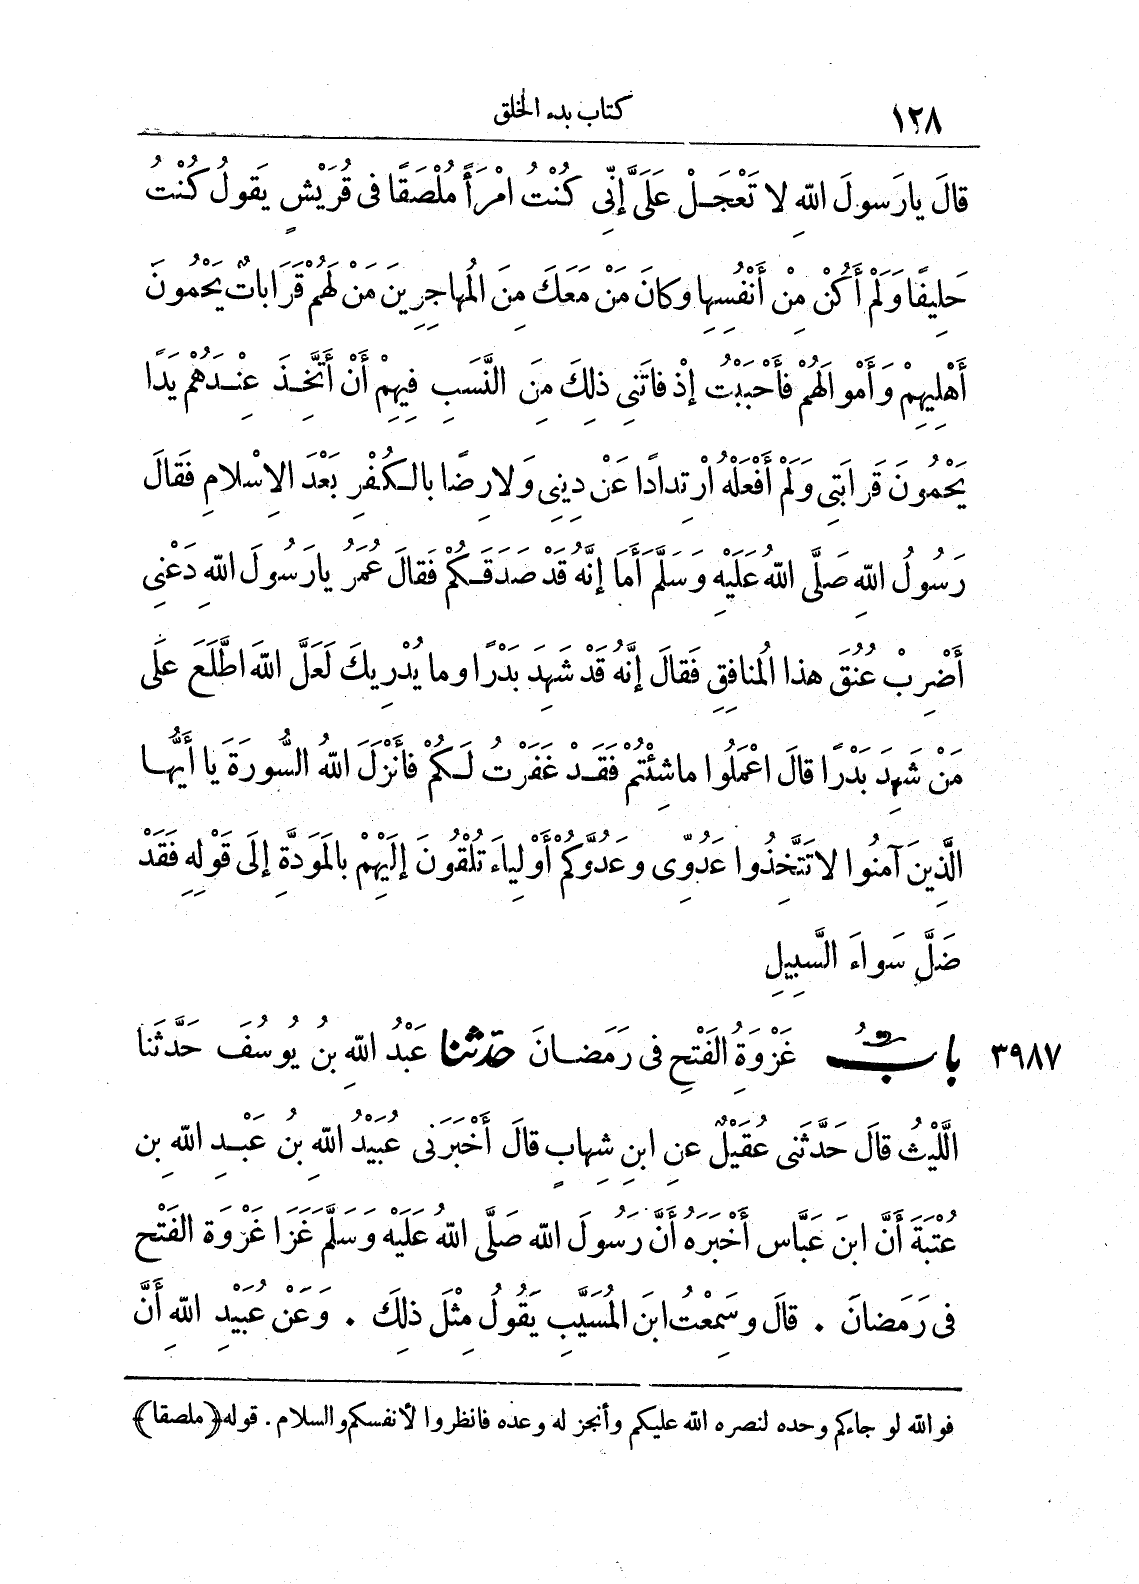 ١٢٨ كتاب بدء الخلق
قالَ يا رَسولَ اللهِ لا تَعْجَلْ عَلَىَّ إِنِّى كُنْتُ امْرَأً مُلْصَقًا فى قُرَيْشٍ يَقولُ كُنْتُ
حَلِيفًا وَلَمْ أَكُنْ مِنْ أَنْفُسِها وكانَ مَنْ مَعَكَ مِنَ المُهاجِرِينَ مَنْ لَهُمْ قَرَاباتٌ يَحْمُونَ
أَهْلِيهِمْ وَأَمْوالَهُمْ فَأَحْبَبْتُ إِذْ فاتَنِى ذلِكَ مِنَ النَّسَبِ فِيهِمْ أَنْ أَتَّخِذَ عِنْدَهُمْ يَدًا
يَحْمُونَ قَرابَتِى وَلَمْ أَفْعَلْهُ ارْتِدادًا عَنْ دِينِى وَلا رِضًا بالكُفْرِ بَعْدَ الإِسْلامِ فَقالَ
رَسُولُ اللهِ صَلَّى اللهُ عَلَيْهِ وَسَلَّمَ أَمَا إِنَّهُ قَدْ صَدَقَكُمْ فَقالَ عُمَرُ يا رَسُولَ اللهِ دَعْنِى
أَضْرِبْ عُنُقَ هذا المُنافِقِ فَقالَ إِنَّهُ قَدْ شَهِدَ بَدْرًا وما يُدْرِيكَ لَعَلَّ اللهَ اطَّلَعَ عَلَى
مَنْ شَهِدَ بَدْرًا قالَ اعْمَلُوا ماشِئْتُمْ فَقَدْ غَفَرْتُ لَكُمْ فأَنْزَلَ اللهُ السُّورَةَ يا أَيُّها
الَّذِينَ آمنُوا لا تَتَّخِذُوا عَدُوِّى وعَدُوَّكُمْ أَوْلِياءَ تُلْقُونَ إِلَيْهِمْ بالمَوَدَّةِ إِلَى قَوْلِهِ فَقَدْ
ضَلَّ سَواءَ السَّبِيلِ
٣٩٨٧ بابُ غَزْوَةُ الفَتْحِ فى رَمَضانَ حدّثنا عَبْدُ اللهِ بنُ يُوسُفَ حَدَّثَنا
اللَّيْثُ قالَ حَدَّثَنى عُقَيْلٌ عنِ ابنِ شِهابٍ قالَ أَخْبَرَنى عُبَيْدُ اللهِ بنُ عَبْدِ اللهِ بن
عُتْبَةَ أَنَّ ابنَ عَبَّاس أَخْبَرَهُ أَنَّ رَسُولَ الله صَلَّى اللهُ عَلَيْهِ وَسَلَّمَ غَزَا غَزْوَةَ الفَتْحِ
فى رَمَضانَ . قالَ وسَمِعْتُ ابنَ المُسَيَّبِ يَقُولُ مِثْلَ ذلِكَ . وَعَنْ عُبَيْدِ اللهِ أَنَّ
فوالله لو جاءكم وحده لنصره الله عليكم وأنجز له وعده فانظروا لأنفسكم والسلام . قوله ﴿ملصقا﴾